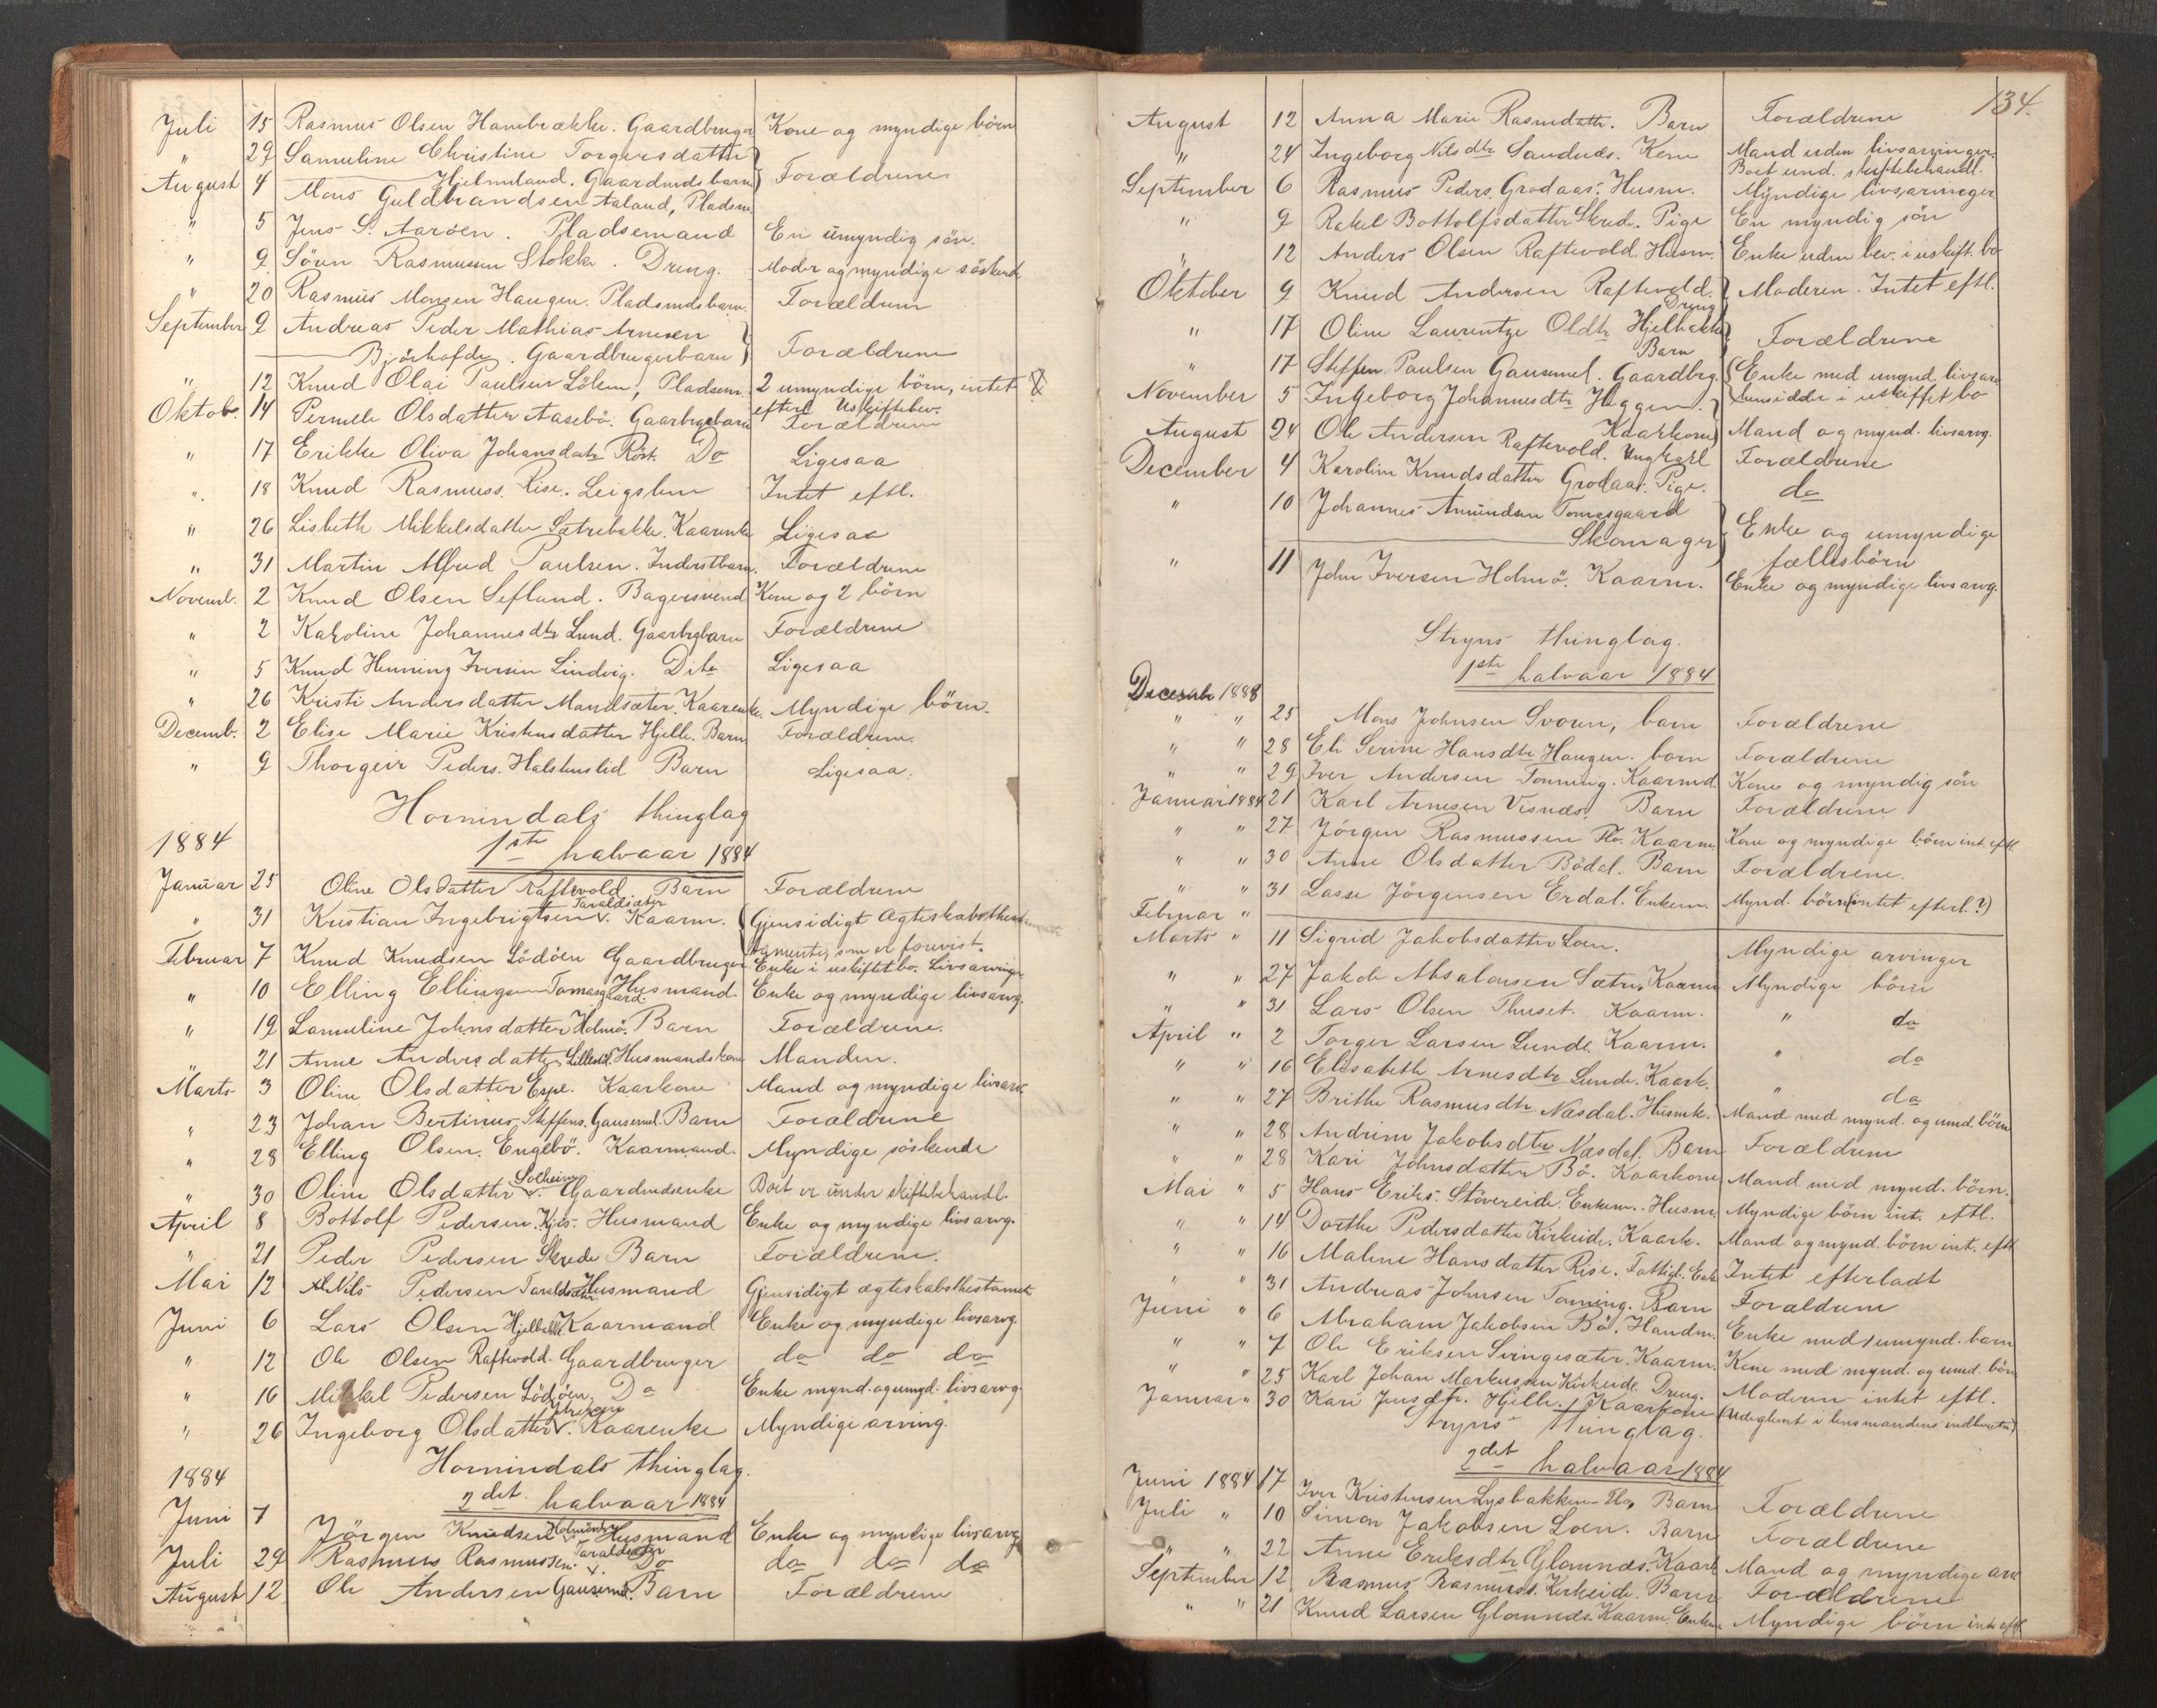 Juli 15 Rasmus Olsen Hanebrække. Gaardbruger Kone og myndige börn
" 29 Samueline Christine Torgersdatter
Hjelmeland. Gaardmdsbarn } Forældrene
August 4 Mons Guldbrandsen Aaland, Pladsm.
" 5 Jens S. Aaröen. Pladsemand En umyndig sön.
" 9 Sören Rasmussen Stokke. Dreng. Moder og myndige söskende
" 20 Rasmus Monsen Haugen. Pladsmdsbarn Forældrene
September 9 Andreas Peder Mathias Arnesen
Björhofde. Gaardbrugerbarn } Forældrene
" 12 Knud Olai Paulsen Löken, Pladsem. 2 umyndige börn, intet
efterl. Uskiftebev.
Oktob. 14 Pernele Olsdatter Aasebö. Gaarbrgbarn Forældrene
" 17 Erikke Oliva Johansdatr Röst. Do Ligesaa
" 18 Knud Rasmuss. Rise. Leigslem Intet eftl.
" 26 Lisbeth Mikkelsdatter Sætrebakke. Kaarenke Ligesaa
" 31 Martin Alfred Paulsen. Inderstbarn. Forældrene
Novemb. 2 Knud Olsen Sefland. Bagersvend Kone og 2 börn
" 2 Karoline Johannesdtr Lund. Gaarbrgbarn Forældrene
" 5 Knud Henning Iversen Lindvig. Dito Ligesaa
" 26 Kristi Andersdatter Mandsæter. Kaarenke. Myndige börn.
Decemb. 2 Elise Marie Kristensdatter Hjelle. Barn Forældrene.
" 9 Thorgeir Peders. Halstenslid Barn Ligesaa.
Hornindals thinglag
1884 1ste halvaar 1884
Januar 25 Oline Olsdatter Raftevold. Barn Forældrene
" 31 Kristian Ingebrigtsen v. Taraldsæter Kaarm. Gjensidigt Ægteskabsthes-
tamente, som er forevist.
Februar 7 Knud Knudsen Lödöen Gaardbruger Enke i uskiftet bo. Livsarvinger
" 10 Elling Ellingsen Tomasgaard. Husmand. Enke og myndige livsarvg.
" 19 Samueline Johnsdatter Holmö. Barn Forældrene.
" 21 Anne Andersdatter Lillestöl. Husmandskone Manden.
Marts 3 Oline Olsdatter Espe. Kaarkone Mand og myndige livsarv.
" 23 Johan Bertinus Steffens. Gausemel. Barn Forældrene
" 28 Elling Olsen. Engebö. Kaarmand. Myndige söskende
" 30 Oline Olsdatter v. Solheim Gaardmdsenke Boet er under skiftebehandl.
April 8 Bottolf Pedersen. Kjös. Husmand Enke og myndige livsarvg.
" 21 Peder Pedersen Skrede Barn Forældrene.
Mai 12 Nils Pedersen Taraldsæter Husmand Gjensidigt ægteskabsthestamet
Juni 6 Lars Olsen Hjelbakk Kaarmand Enke og myndige livsarvg.
" 12 Ole Olsen Raftevold. Gaardbruger do do do
" 16 Mikkel Pedersen Lödöen. Do Enke mynd. og umyd. livsarvg.
" 26 Ingeborg Olsdatter v. Kaarenke Myndige arving.
Hornindals thinglag.
1884 2det halvaar 1884
Juni 7 Jörgen Knudsen Husmand Enke og myndige livsarvg
Juli 29 Rasmus Rasmussen. v. Taraldsæter Do do do do
August 12 Ole Andersen Gausemel. Barn Forældrene
134.
August 12 Anna Marie Rasmdattr. Barn Forældrene
" 24 Ingeborg Nilsdtr Sandnæs. Kone Mand uden livsarvinger.
Boet und. skiftebehandl.
September 6 Rasmus Peders. Grodaas. Husm. Myndige livsarvinger
" 9 Rakel Bottolfsdatter Skrede. Pige En myndig sön
" 12 Anders Olsen Raftevold. Husm. Enke uden bev. i uskift. bo
Oktober 9 Knud Andersen Raftevold. Dreng } Moderen. Intet eftl.
" 17 Oline Laurentze Oldtr Hjelbakk
Barn } Forældrene
" 17 Steffen Paulsen Gausemel. Gaardbrg. Enke med umynd. livsarv
hensidder i uskiftet bo
November 5 Ingeborg Johannesdtr Heggen.
Kaarkone } Mand og mynd. livsarvg.
August 24 Ole Andersen Raftevold. Ungkarl Forældrene
December 4 Karoline Knudsdatter Grodaas. Pige. do
" 10 Johannes Amundsen Tomasgaard
Skomager } Enke og umyndige
fællesbörn
" 11 John Iversen Holmö. Kaarm. Enke og myndige livsarvg.
Stryns thinglag.
1ste halvaar 1884
December 1883
" " 25 Mons Johnsen Svoren, barn Forældrene
" " 28 Eli Serine Hansdtr Haugen. barn Forældrene
" " 29 Iver Andersen Tonning. Kaarmd Kone og myndig sön
Januar 1884 21 Karl Arnesen Visnæs. Barn Forældrene
" " 27 Jörgen Rasmussen Flo. Kaarm. Kone og myndige börn int. eftl.
" " 30 Anne Olsdatter Bödal. Barn Forældrene.
" " 31 Lasse Jörgensen Erdal. Enkem. Mynd. börn (intet efterl.?)
Februar "
Marts " 11 Sigrid Jakobsdatter Loen. Myndige arvinger
" " 27 Jakob Absalonsen Sætre. Kaarm Myndige börn
" " 31 Lars Olsen Thuset. Kaarm. " do
April " 2 Torger Larsen Lunde. Kaarm. " do
" " 16 Elisabeth Arnesdtr Lunde. Kaark. " da
" " 27 Brithe Rasmusdtr Næsdal. Husmk. Mand med mynd. og umd. börn
" " 28 Andrine Jakobsdtr Næsdal. Barn Forældrene
" " 28 Kari Johnsdatter Bö. Kaarkone Mand med mynd. börn.
Mai " 5 Hans Eriks. Stövereide. Enkem. Husm. Myndige börn int. eftl.
" " 14 Dorthe Pedersdatter Kirkeide. Kaark. Mand og mynd. börn int. eftl
" " 16 Malene Hansdatter Rise. Fattigl. Enke Intet efterladt
" " 31 Andreas Johnsen Tonning. Barn Forældrene
Juni " 6 Abraham Jakobsen Bö. Handm. Enke med 1 umynd. barn
" " 7 Ole Eriksen Svingesæter. Kaarm. Kone med mynd. og umd. börn
" " 25 Karl Johan Markussen Kirkeide. Dreng. Moderen intet eftl.
Januar " 30 Kari Jensdtr. Hjelle. Kaarkone (Udeglemt i lensmandens indberetn)
Stryns thinglag.
2det halvaar 1884
Juni 1884 17 Iver Kristensen Lysbakken Flo, Barn Forældrene
Juli " 10 Simon Jakobsen Loen. Barn Forældrene
" " 22 Anne Eriksdtr Glomnæs. Kaark Mand og myndige arv
September 12 Rasmus Rasmuss. Kirkeide. Barn Forældrene
" " 21 Knud Larsen Glomnæs. Kaarm. Enkem Myndige börn int. eftl.